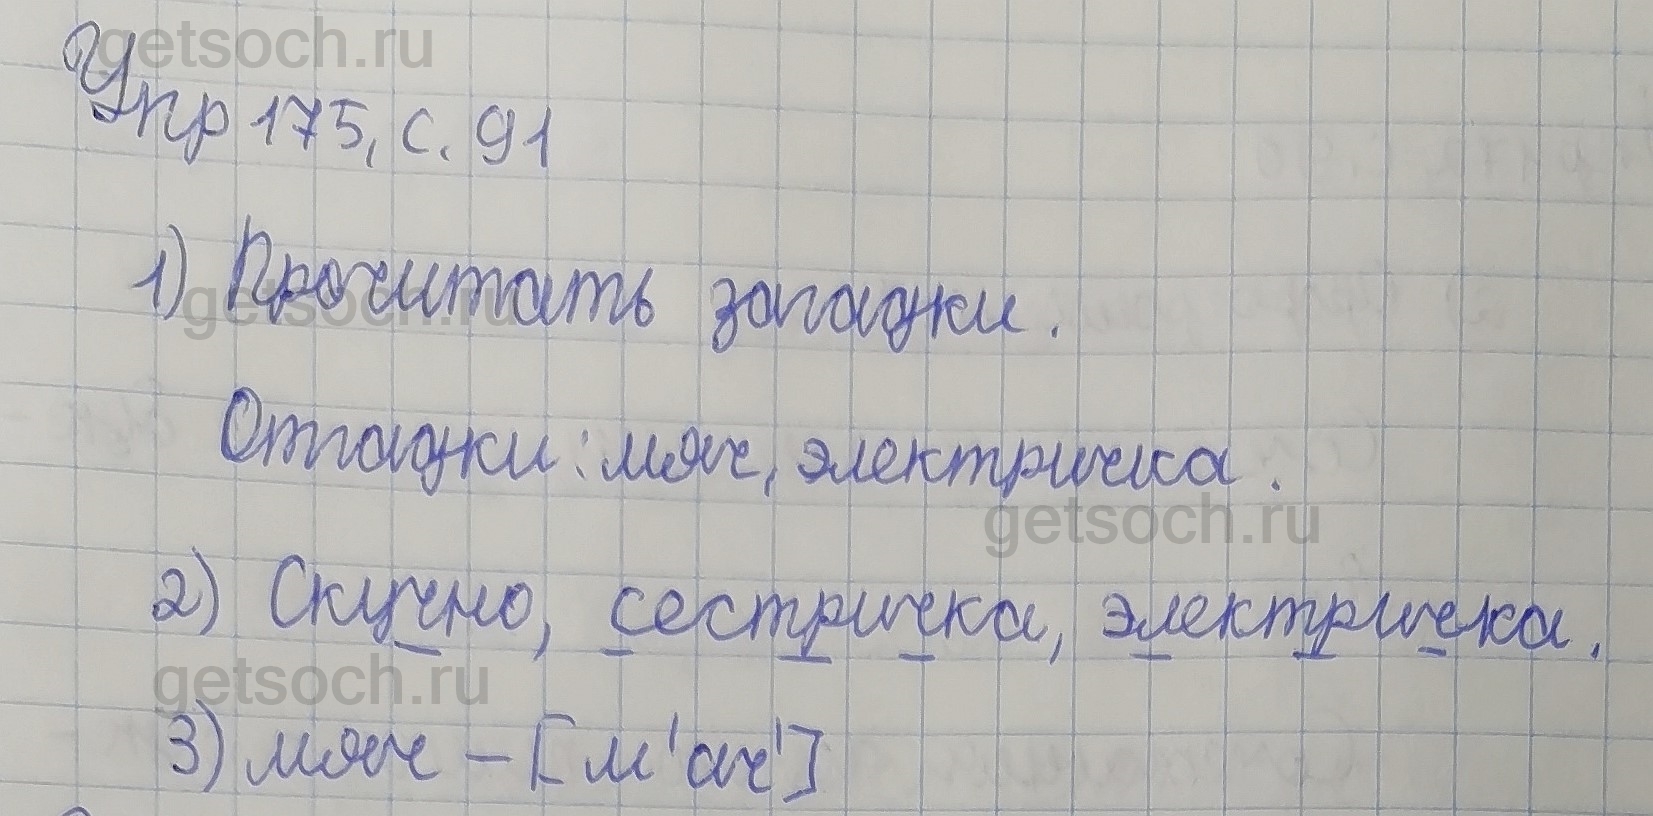 getsoch.ru
Упр 175, с. 91
1) Прочитать загадки.
getsoch.ru
Отгадки: мяч, электричка.
getsoch.ru
2) Скучно, сестричка, электричка.
getsoch.ru
3) мяч – [м'ач']